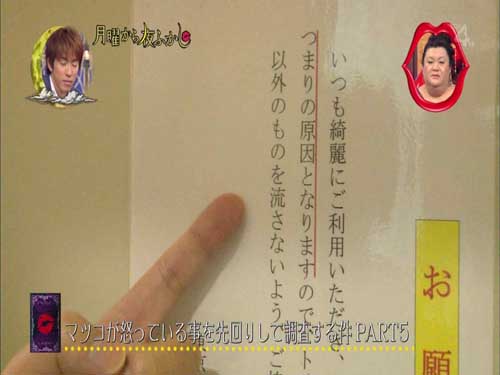 月曜から夜ふかし
お願
いつも綺麗にご利用いただき、
つまりの原因となりますので、ト
以外のものを流さないようご
マツコが怒っている事を先回りして調査する件 PART5